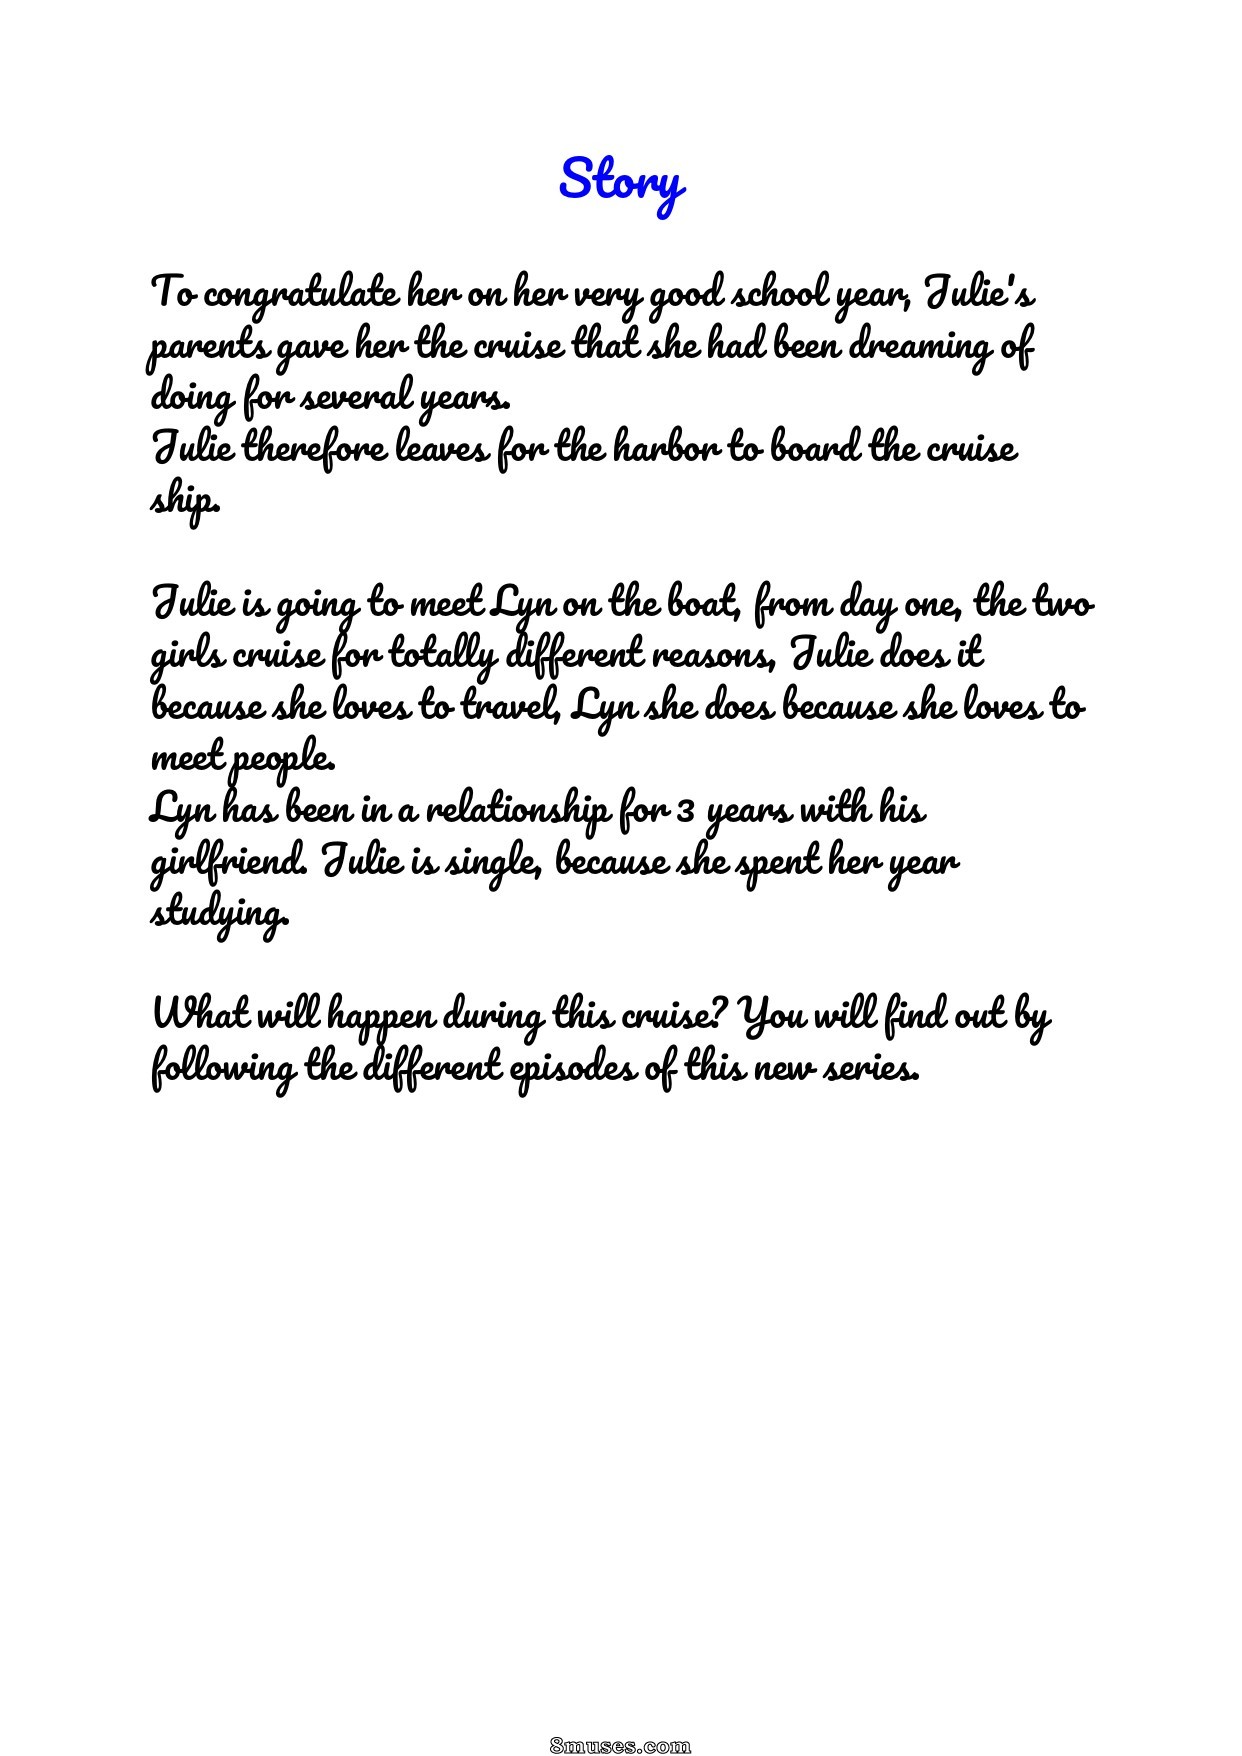 Story
To congratulate her on her very good school year, Julie's
parents gave her the cruise that she had been dreaming of
doing for several years.
Julie therefore leaves for the harbor to board the cruise
ship.
Julie is going to meet Lyn on the boat, from day one, the two
girls cruise for totally different reasons, Julie does it
because she loves to travel, Lyn she does because she loves to
meet people.
Lyn has been in a relationship for 3 years with his
girlfriend. Julie is single, because she spent her year
studying.
What will happen during this cruise? You will find out by
following the different episodes of this new series.
8muses.com